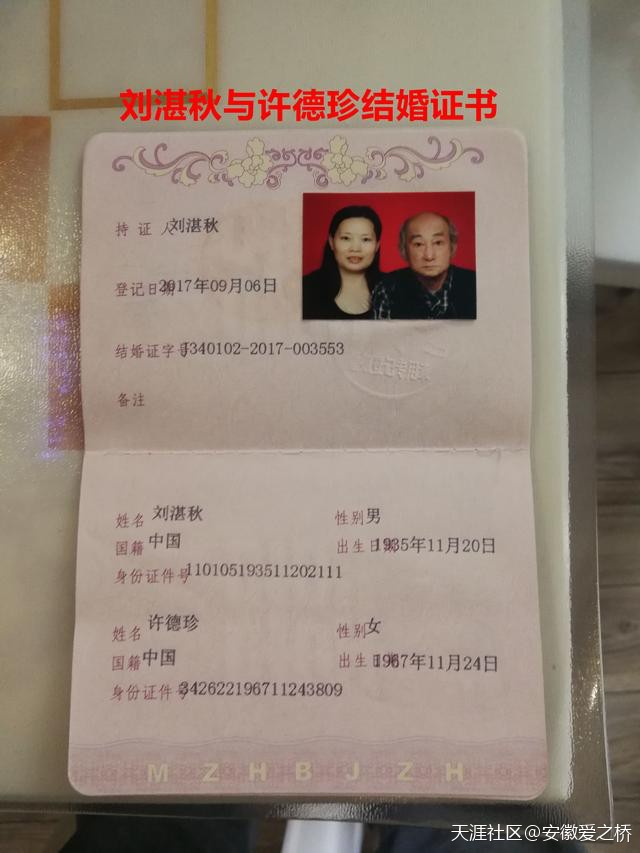 刘湛秋与许德珍结婚证书
持证人刘湛秋
登记日期2017年09月06日
结婚证字号J340102-2017-003553
备注
姓名 刘湛秋 性别男
国籍 中国 出生日期1935年11月20日
身份证件号110105193511202111
姓名 许德珍 性别女
国籍 中国 出生日期1967年11月24日
身份证件号342622196711243809
M Z H B J Z H
天涯社区@安徽爱之桥